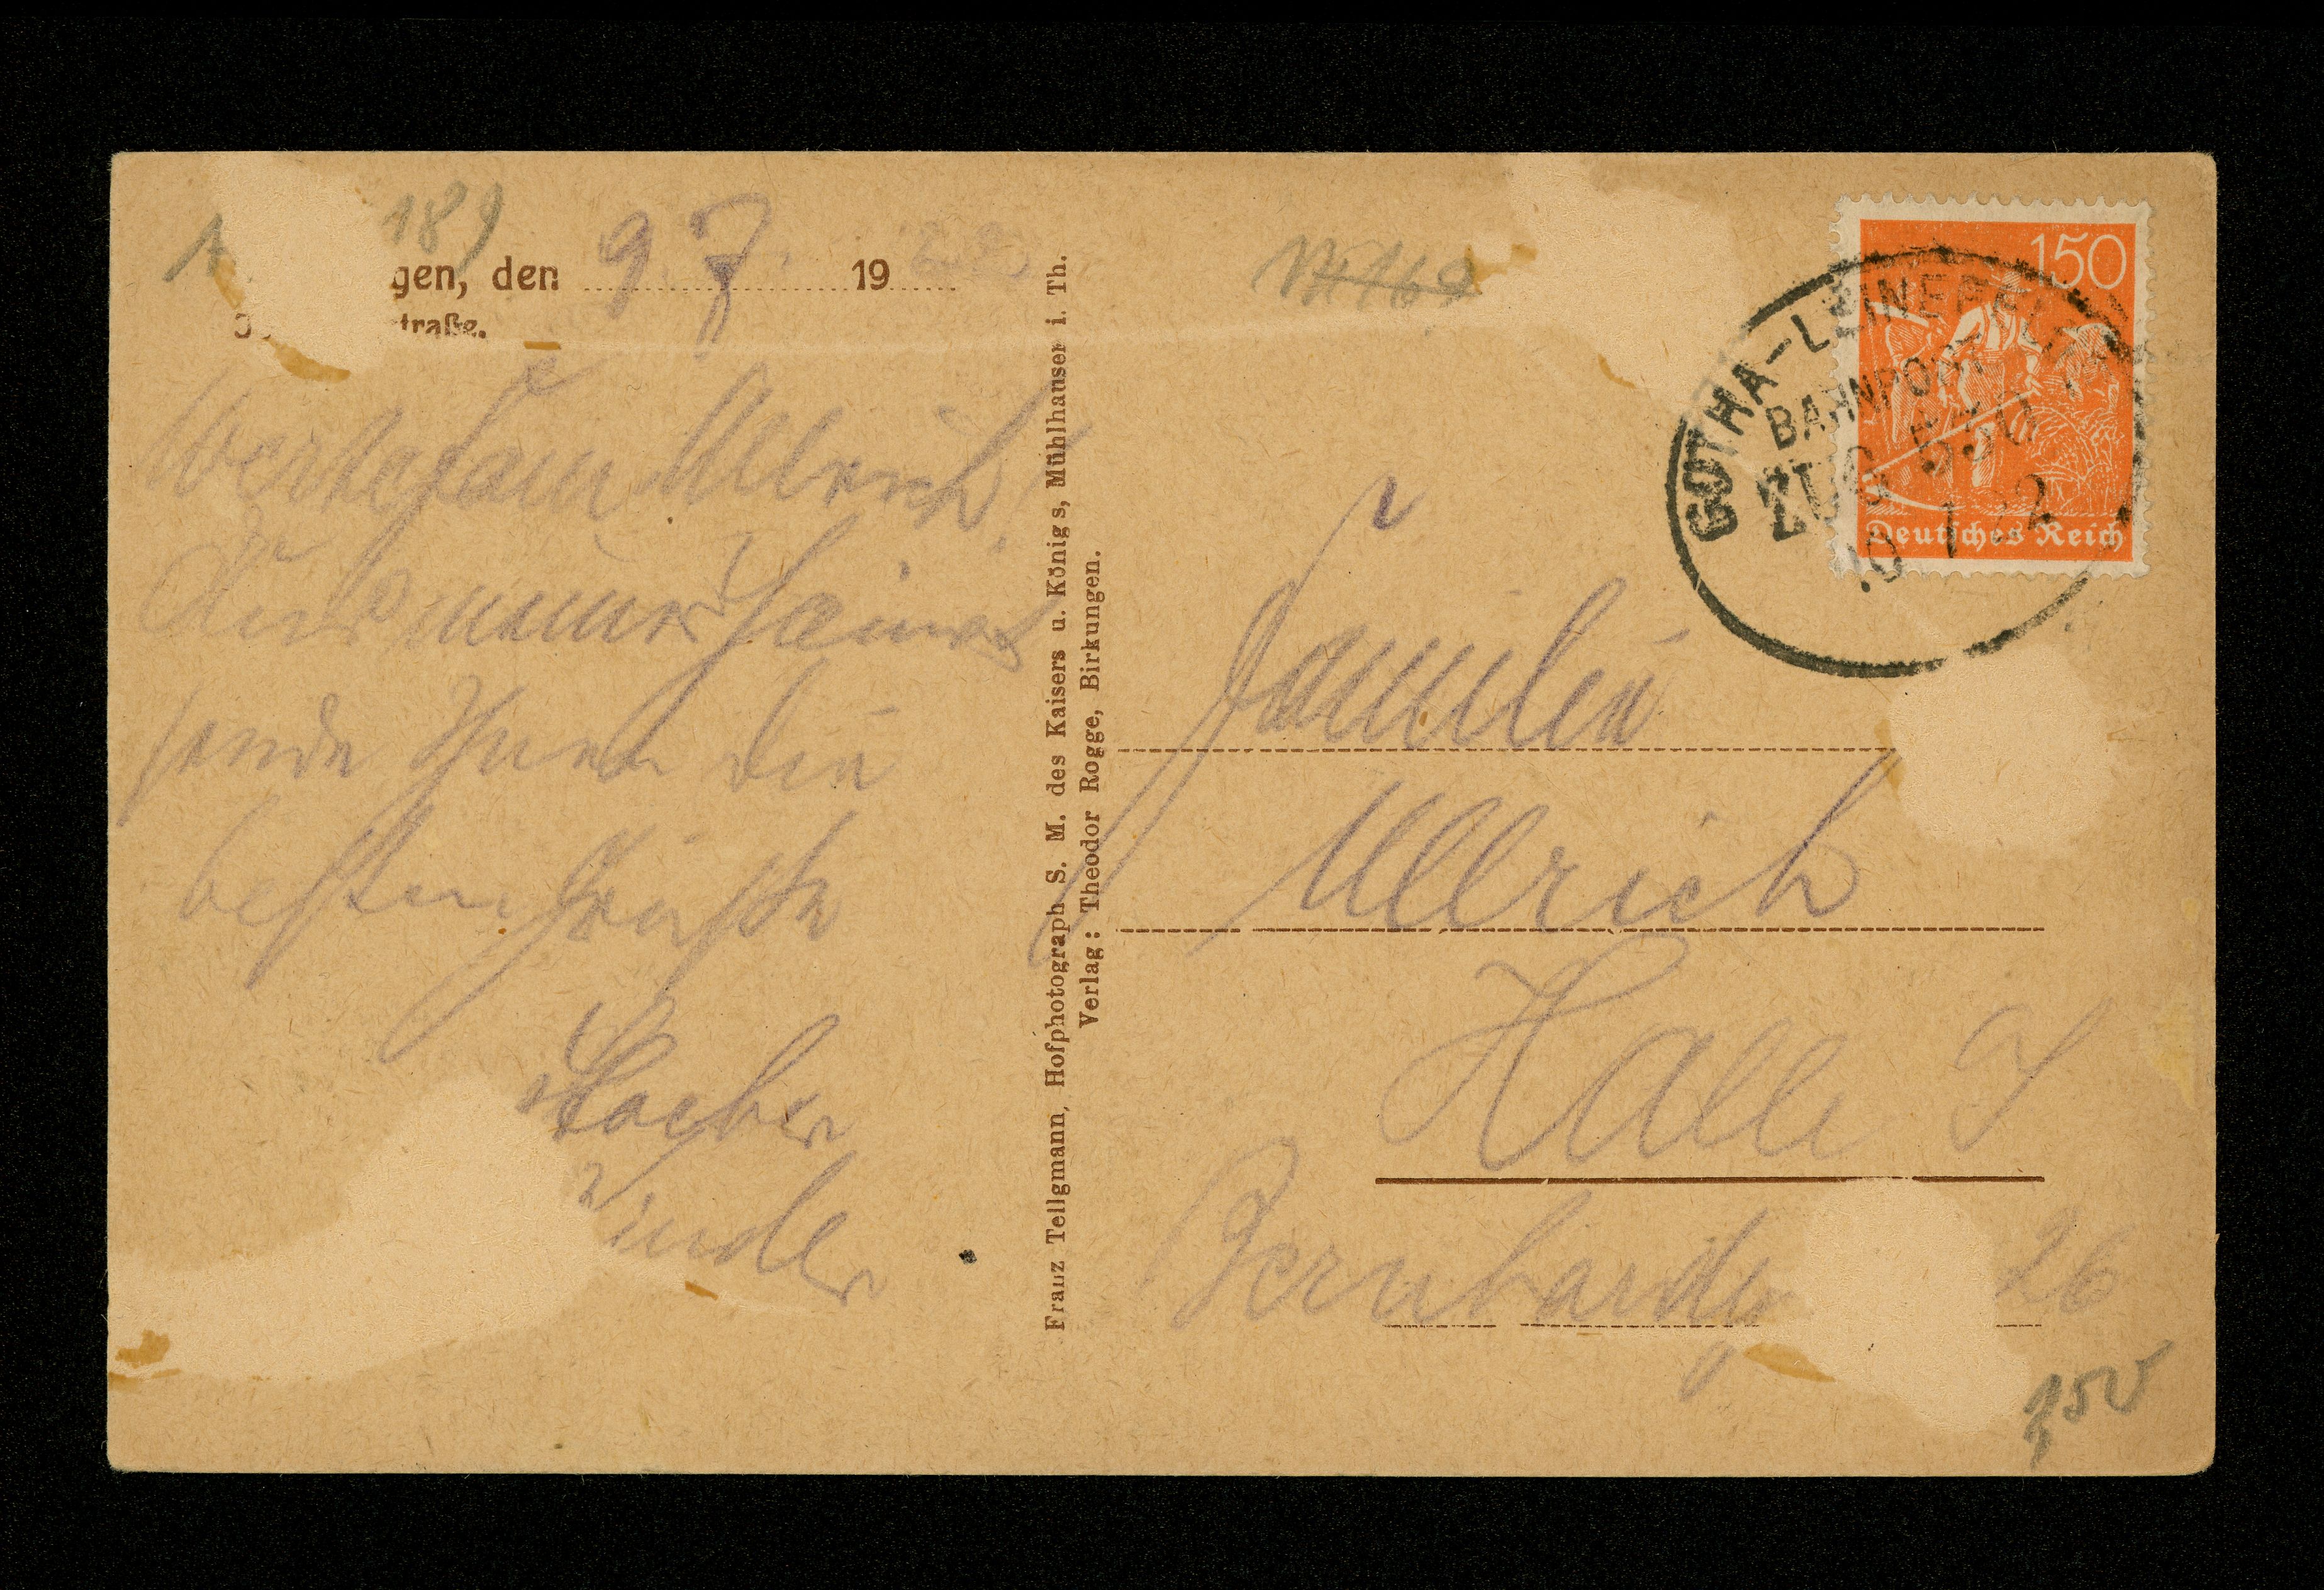 189
gen, den 9. 7. 19 22
traße.
Werte Fam Ullrich!
Aus meiner Heimat
sende Ihnen die
besten Grüße
Franz Tellgmann, Hofphotograph S. M. des Kaisers u. Königs, Mühlhausen i. Th.
Verlag: Theodor Rogge, Birkungen.
M 169
150
Deutsches Reich
GOTHA-LEINEFELDE
BAHNPOST
ZUG 550
10 7 22
Familie
Ullrich
Halle S
Bernhardy 26
150